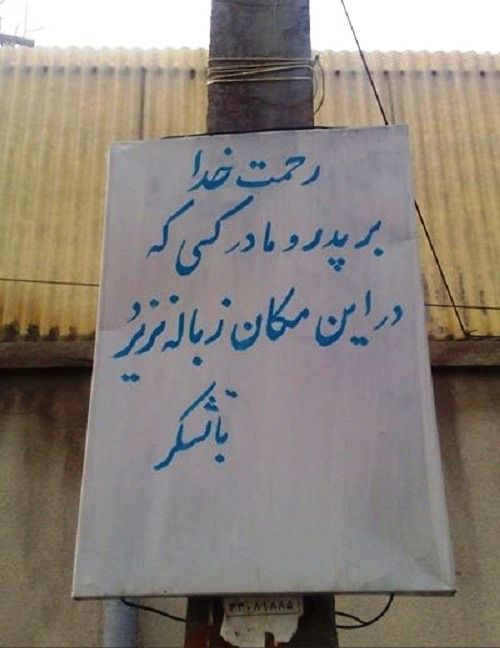 رحمت خدا
بر پدر و مادر کسی که
در این مکان زباله نریزد
باتشکر
۳۳۰۸۱۸۸۵